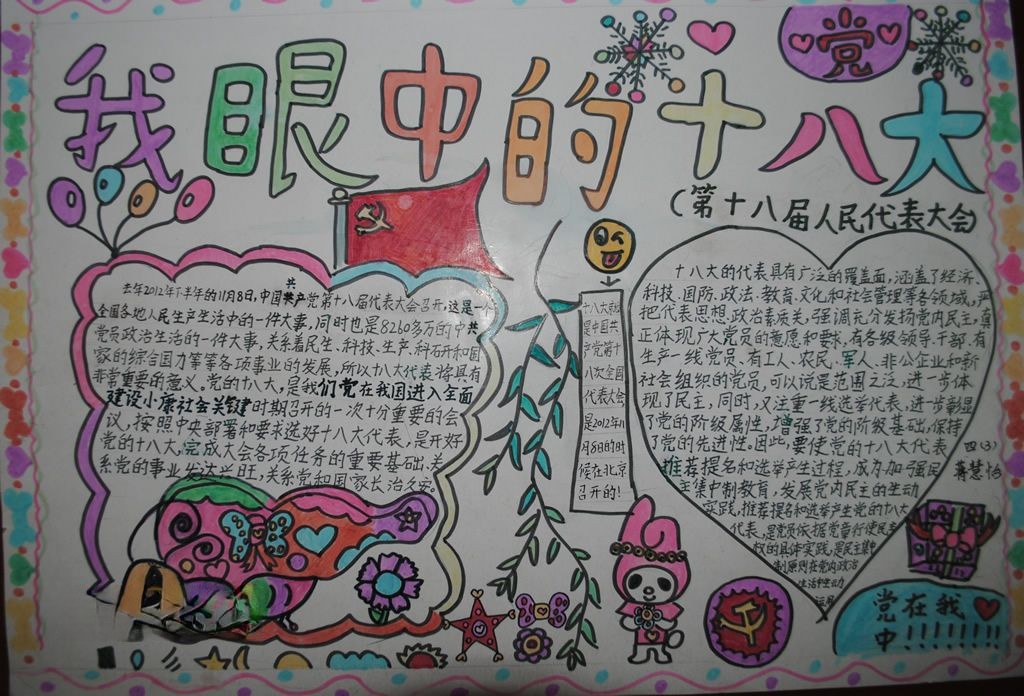 党
我眼中的十八大
(第十八届人民代表大会)
去年2012年下半年的11月8日,中国共产党第十八届代表大会召开,这是一个
全国各地人民生产生活中的一件大事,同时也是8260多万的中共
党员政治生活的一件大事,关系着民生、科技、生产、科研和国
家的综合国力等等各项事业的发展,所以十八大代表将具有
非常重要的意义。党的十八大,是我们党在我国进入全面
建设小康社会关键时期召开的一次十分重要的会
议,按照中央部署和要求选好十八大代表,是开好
党的十八大,完成大会各项任务的重要基础,关
系党的事业发达兴旺,关系党和国家长治久安。
十八大就
是中国共
产党第十
八次全国
代表大会
是2012年11
月8日的时
候在北京
召开的!
十八大的代表具有广泛的覆盖面,涵盖了经济、
科技、国防、政法、教育、文化和社会管理等各领域,严
把代表思想、政治素质关,强调充分发扬党内民主,真
正体现广大党员的意愿和要求,有各级领导干部,有
生产一线党员,有工人、农民、军人、非公企业和新
社会组织的党员,可以说是范围之泛,进一步体
现了民主,同时,又注重一线选举代表,进一步彰显
了党的阶级属性,增强了党的阶级基础,保持
了党的先进性。因此,要使党的十八大代表
推荐提名和选举产生过程,成为加强民
主集中制教育,发展党内民主的生动
实践,推荐提名和选举产生党的十八大
代表,是党员依据党章行使民主
权的具体实践,是民主集中
制原则在党内政治
生活中生动
运用
四(3)
蒋慧怡
党在我
中!!!!!!!!